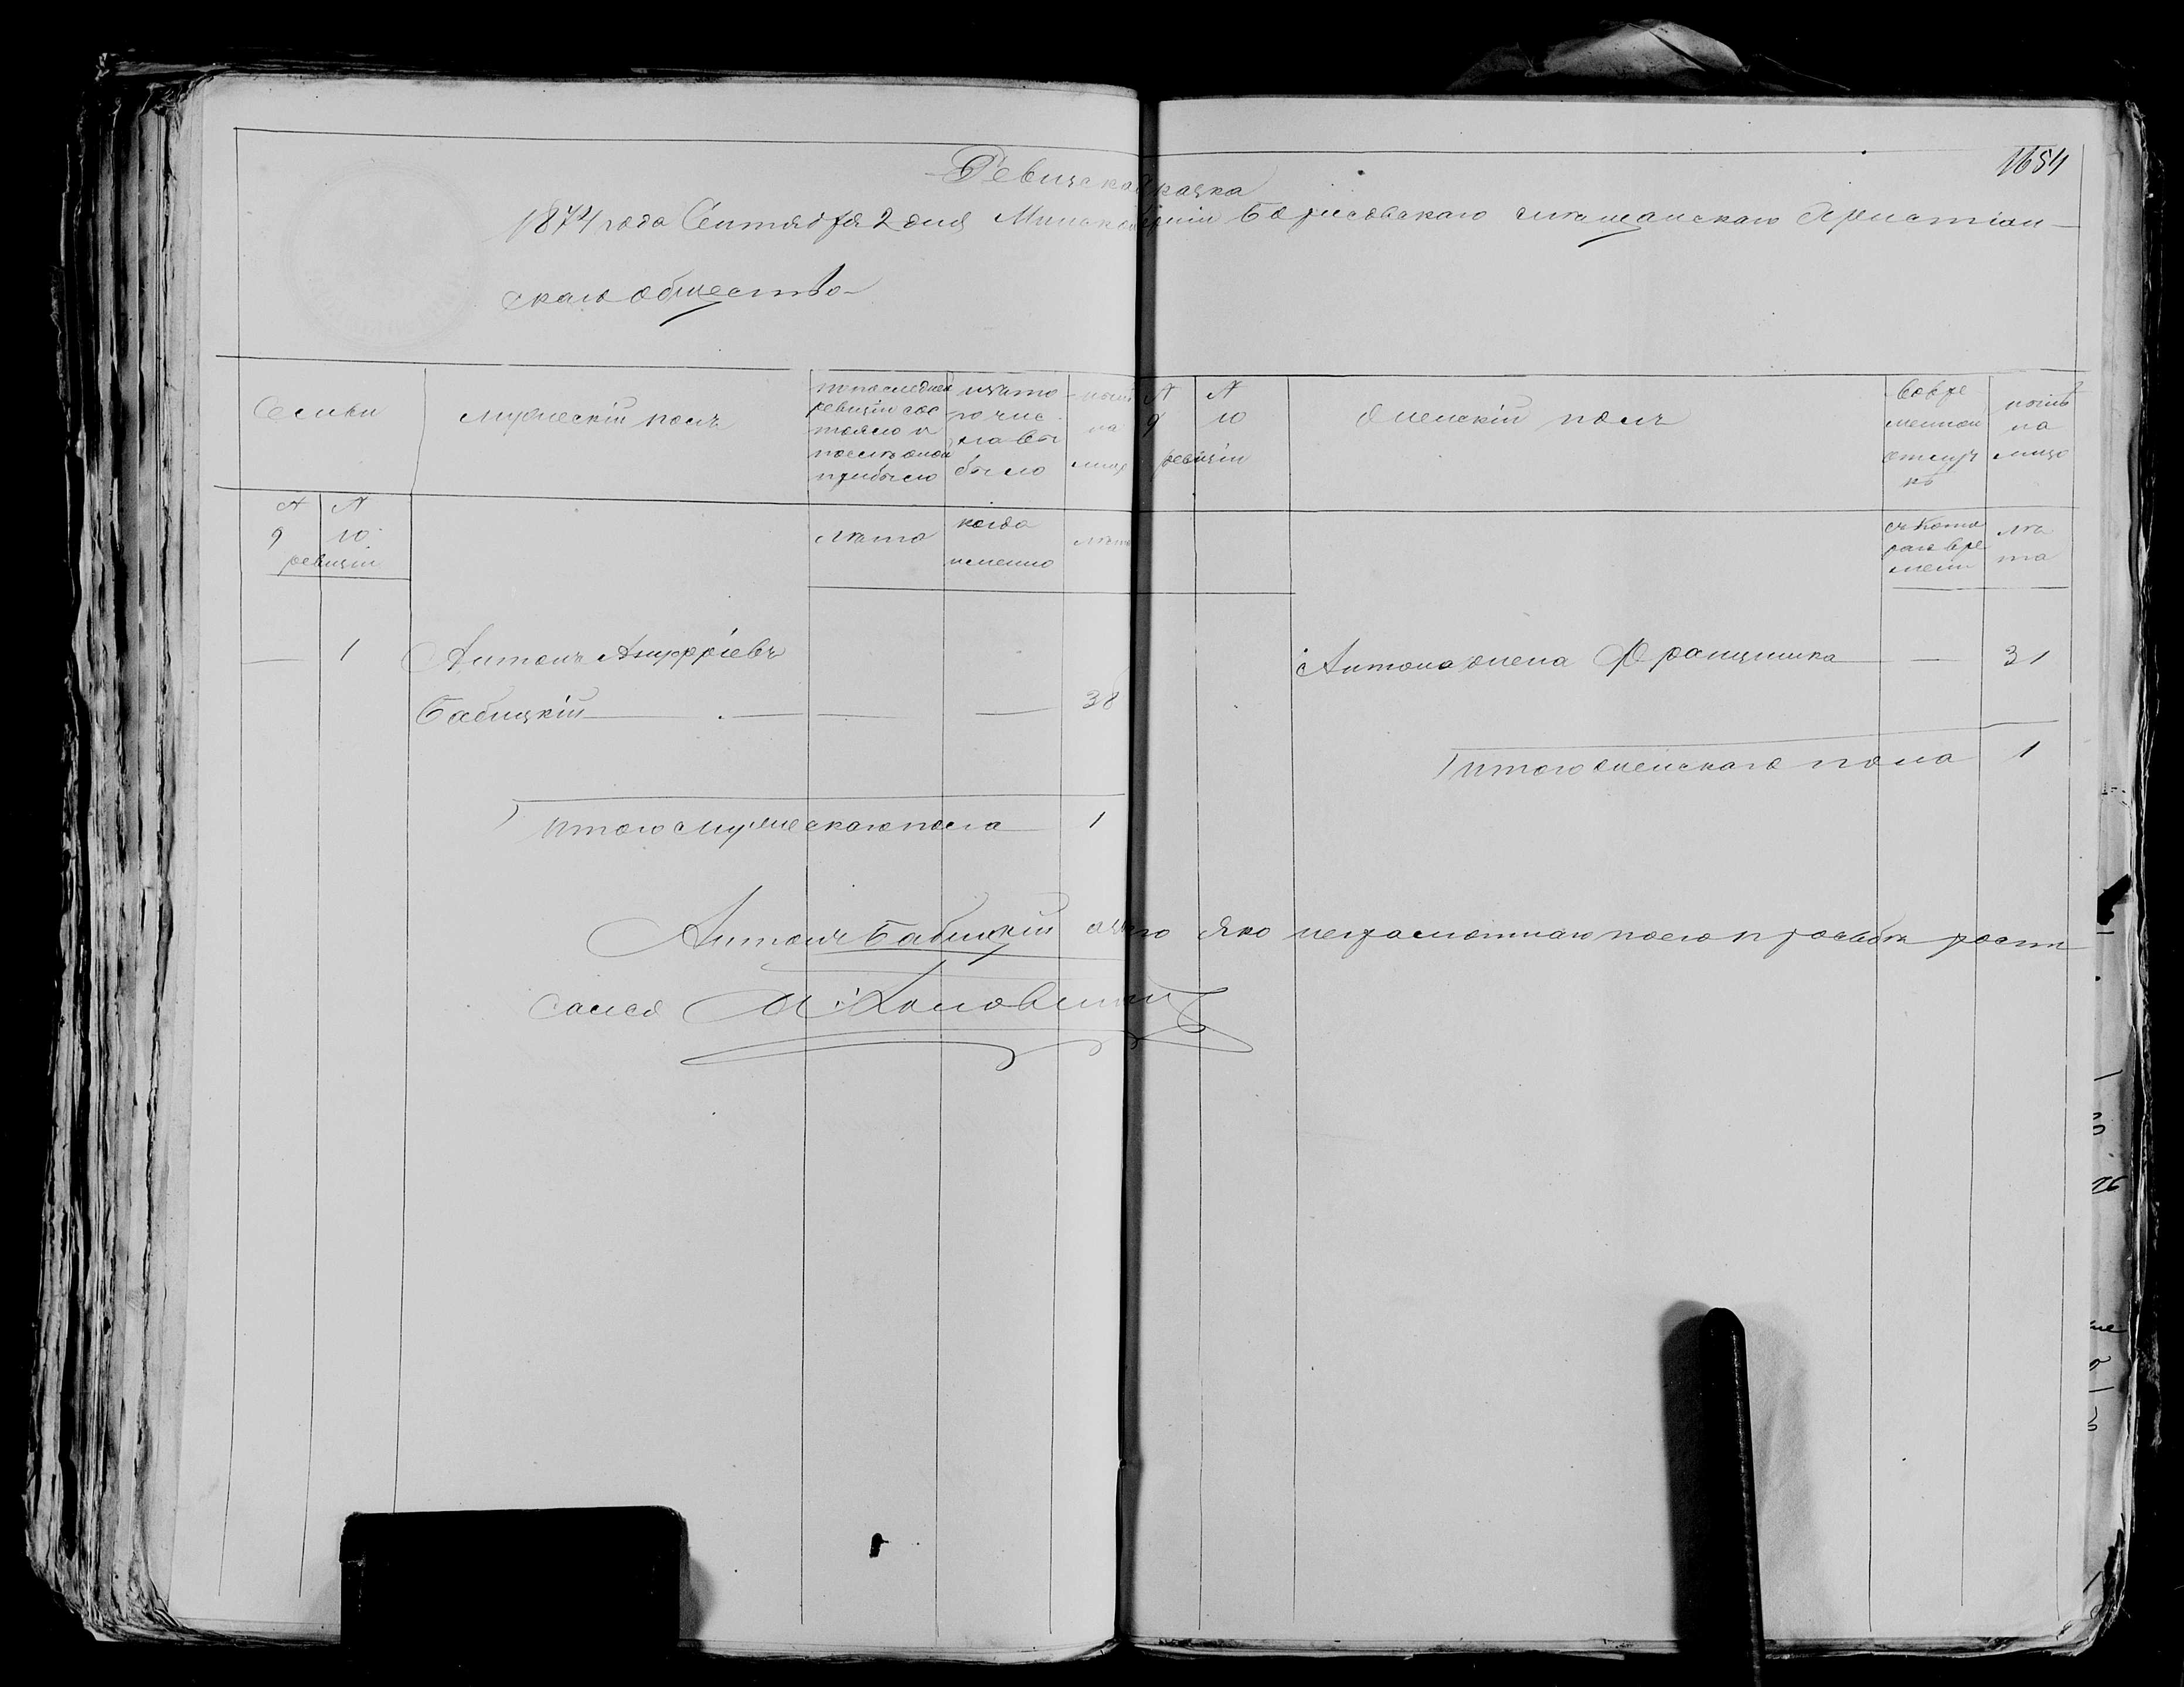 1654
Ревизская сказка
1874 года Сентября 2 дня Минской губернии Борисовскаго мещанскаго Христіан-
скаго общества
Семьи
мужескій полъ
по последней ревизіи состояло и после оной прибыло
изъ того числа выбыло
ныне на лицо
№ 9
№ 10
ревизіи
женскій полъ
Во временной отлучкѣ
ныне на лицо
№ 9
№ 10
ревизіи
лѣта
когда именно
лѣта
съ котораго времени
лѣта
— 1 Антонъ Ануфріевъ
Бабицкій — — — 38
Антона жена Францишка — 31
Итого женскаго пола 1
Итого мужескаго пола 1
Антонъ Бабицкій а за него яко неграмотнаго по его просьбѣ роспи
сался